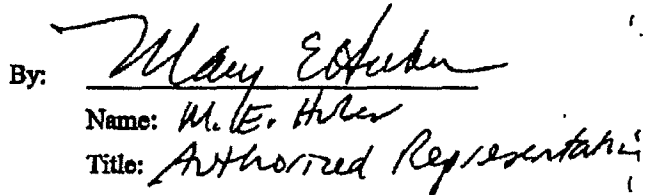 By: Mary E Huber
Name: M. E. Huber
Title: Authorized Representative